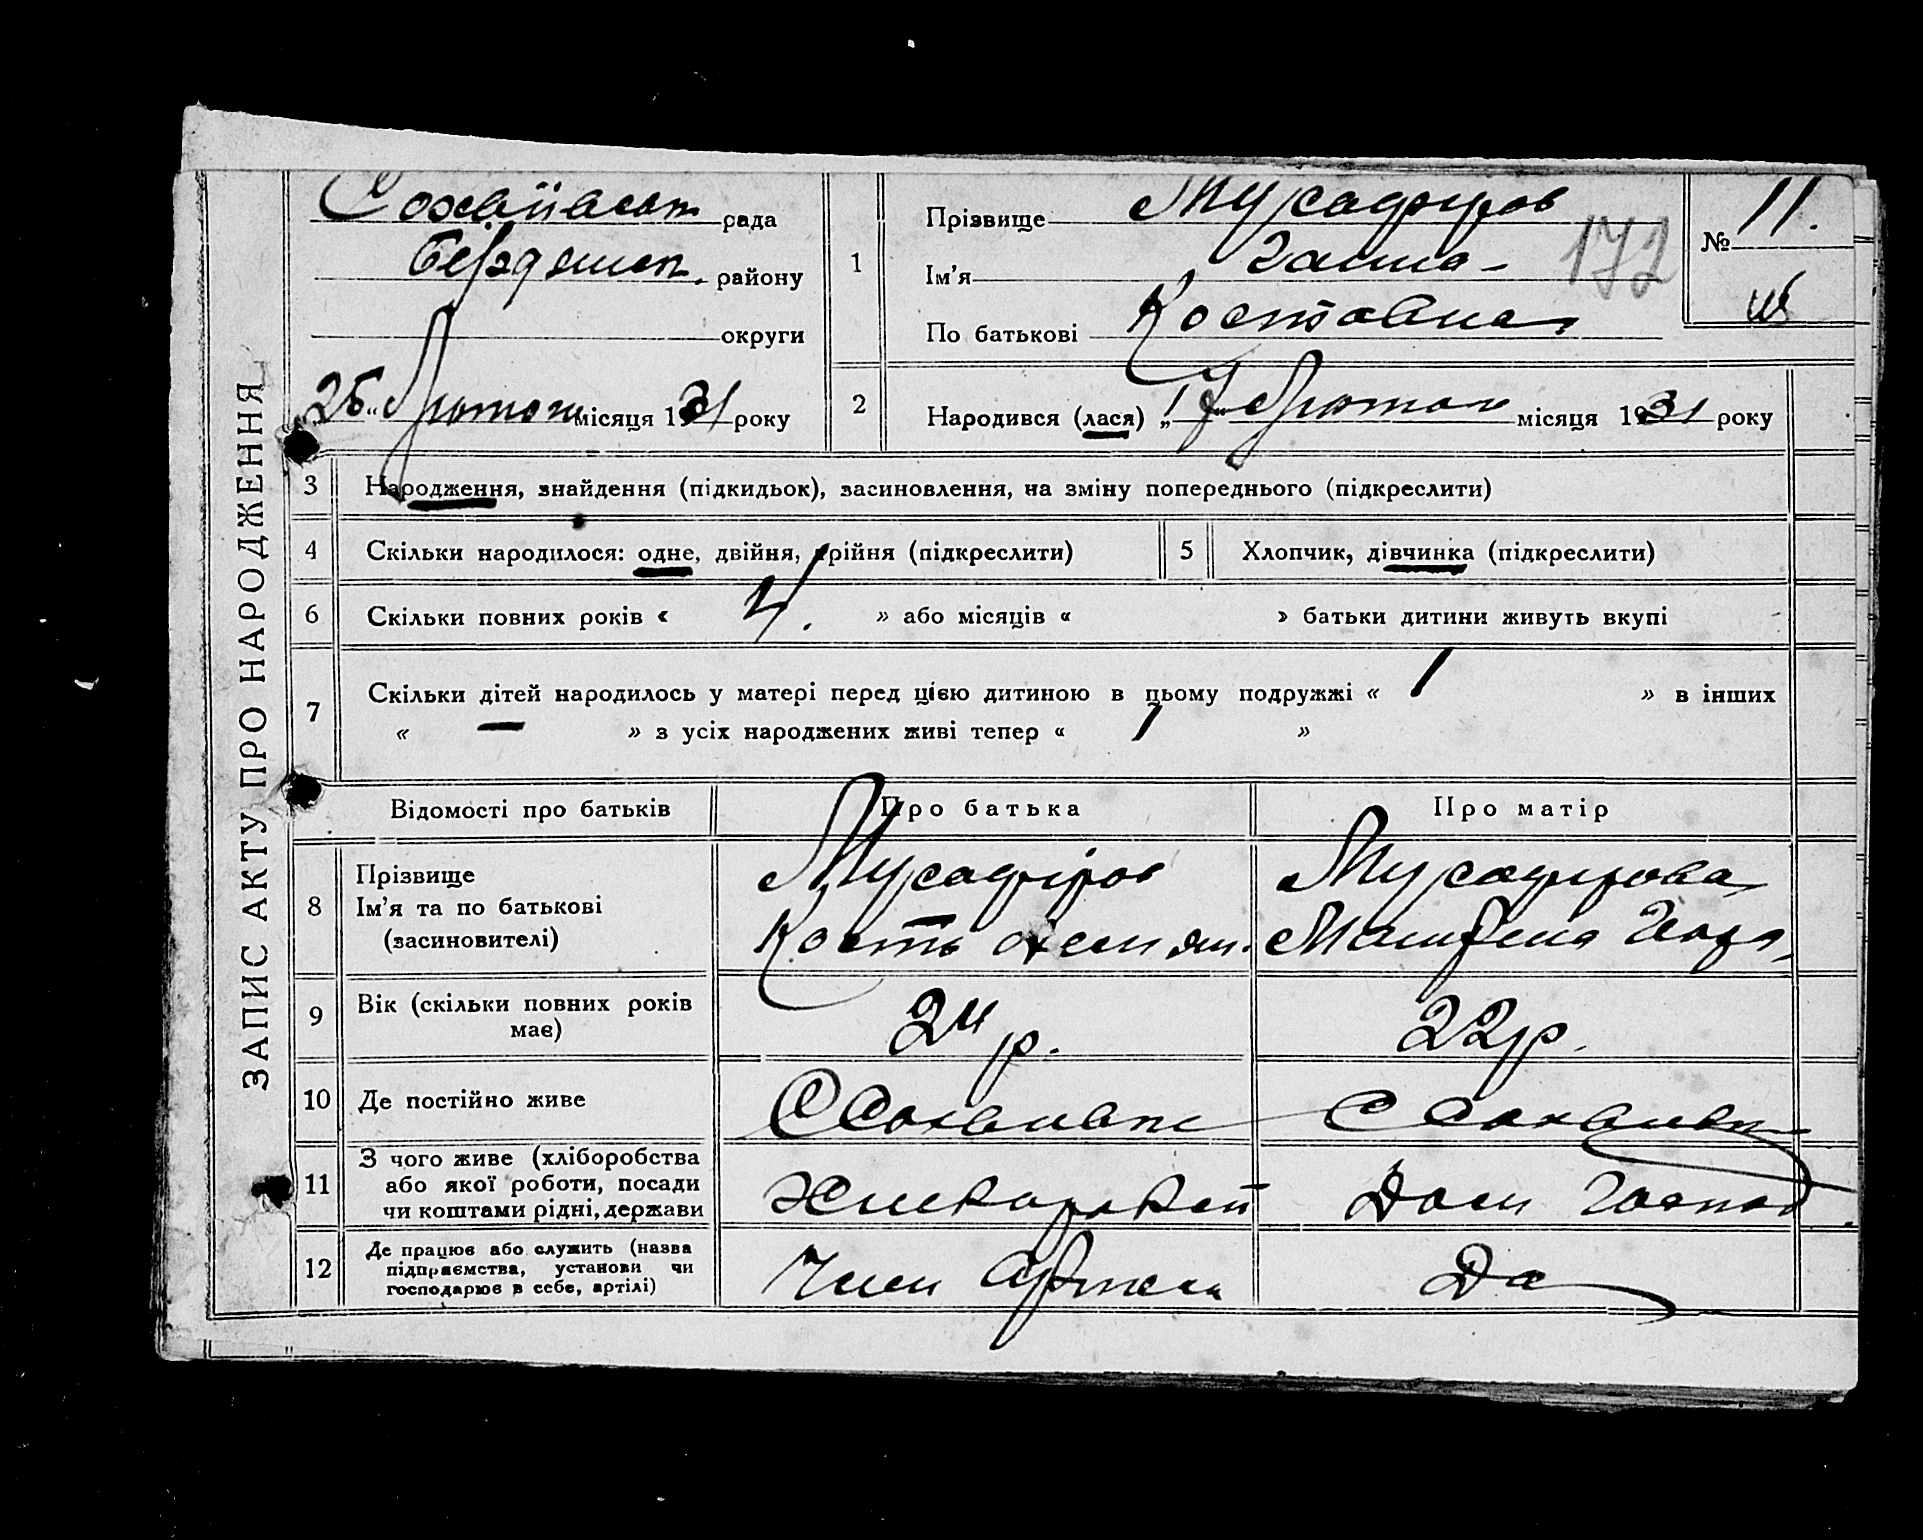 ЗАПИС АКТУ ПРО НАРОДЖЕННЯ
рада
району
округи
25 " Лютого місяця 1931 року
1
Прізвище Мусафиров
Ім'я Ганна
172
По батькові Костовна
№ 11.
2
Народився (лася) „17" Лютого місяця 1931 року
3
Народження, знайдення (підкидьок), засиновлення, на зміну попереднього (підкреслити)
4
Скільки народилося: одне, двійня, трійня (підкреслити)
5
Хлопчик, дівчинка (підкреслити)
6
Скільки повних років « 4. » або місяців « » батьки дитини живуть вкупі
7
Скільки дітей народилось у матері перед цією дитиною в цьому подружжі « 1 » в інших
« — » з усіх народжених живі тепер « 1 »
Відомості про батьків
Про батька
Про матір
8
Прізвище
Ім'я та по батькові
(засиновителі)
Мусафіров
Кость
Мусафирова
9
Вік (скільки повних років
має)
24 р.
22 р.
10
Де постійно живе
11
З чого живе (хліборобства
або якої роботи, посади
чи коштами рідні, держави
Дом Господ.
12
Де працює або служить (назва
підприємства, установи чи
господарює в себе, артілі)
Член Артели
До